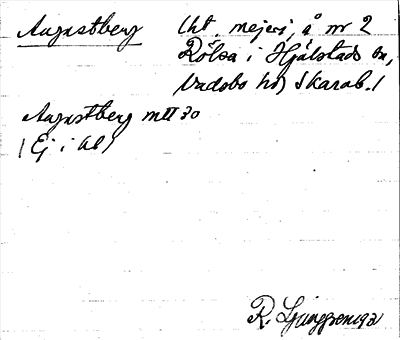 Augustberg lht. mejeri, å nr 2
Rölsa i Hjälstads sn,
Vadsbo hd, Skarab. l
Augustberg mII 30
(Ej i Al)
R. Ljunggren 1931